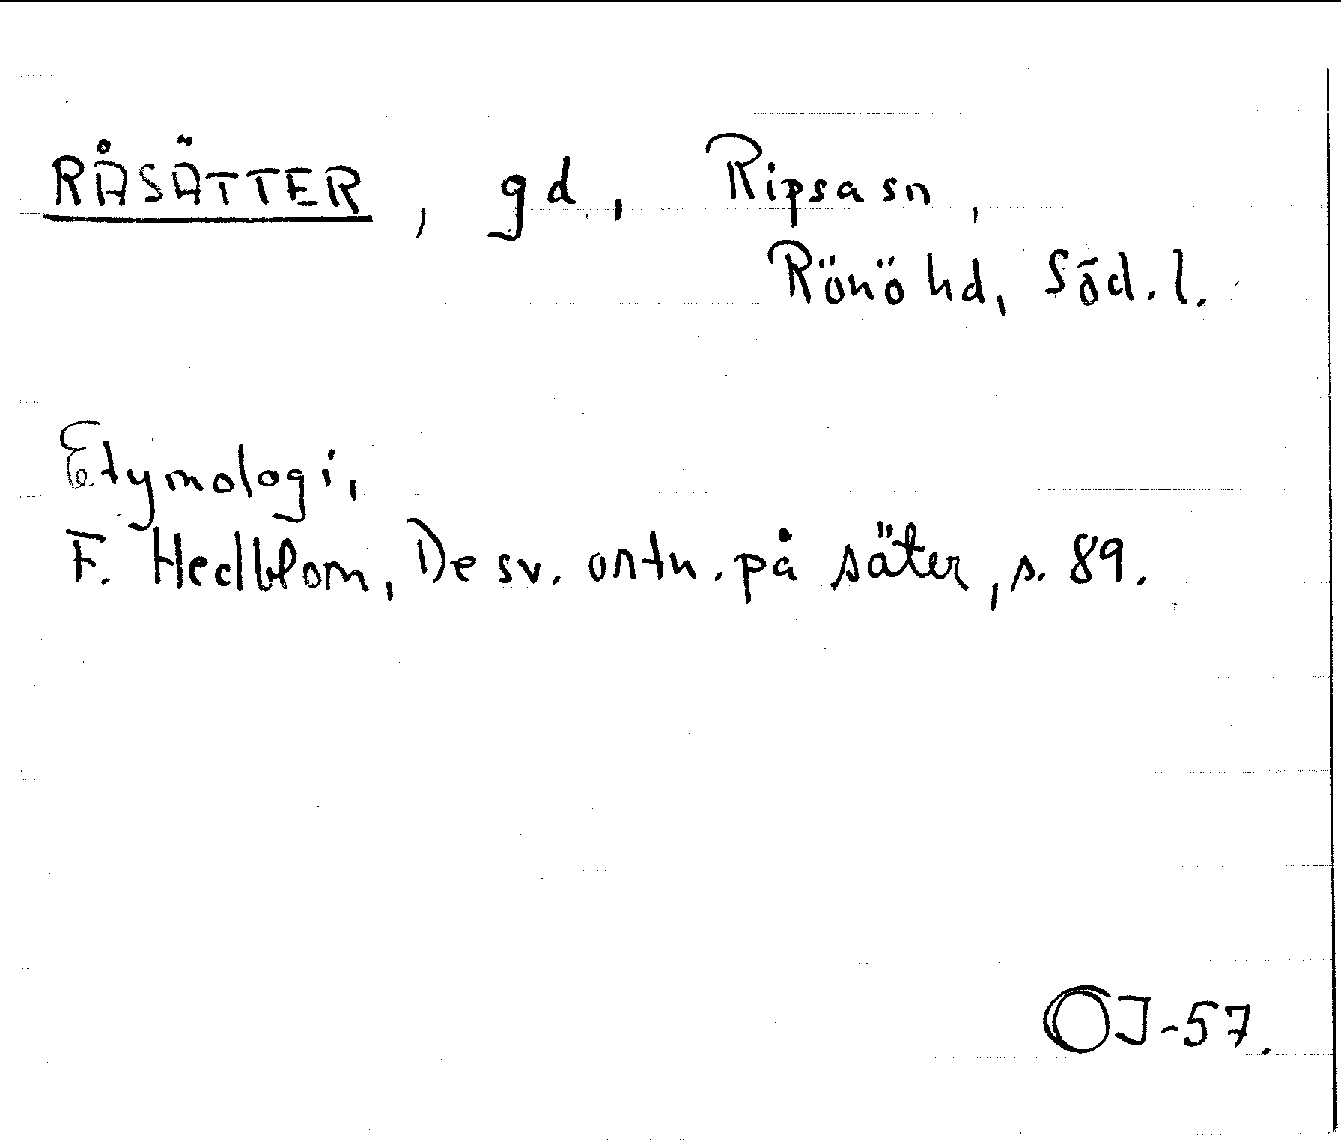 RÅSÄTTER, gd, Ripsa sn,
Rönö hd, Söd. l.
Etymologi,
F. Hedblom, De sv. ortn. på säter, s. 89.
OJ-57.